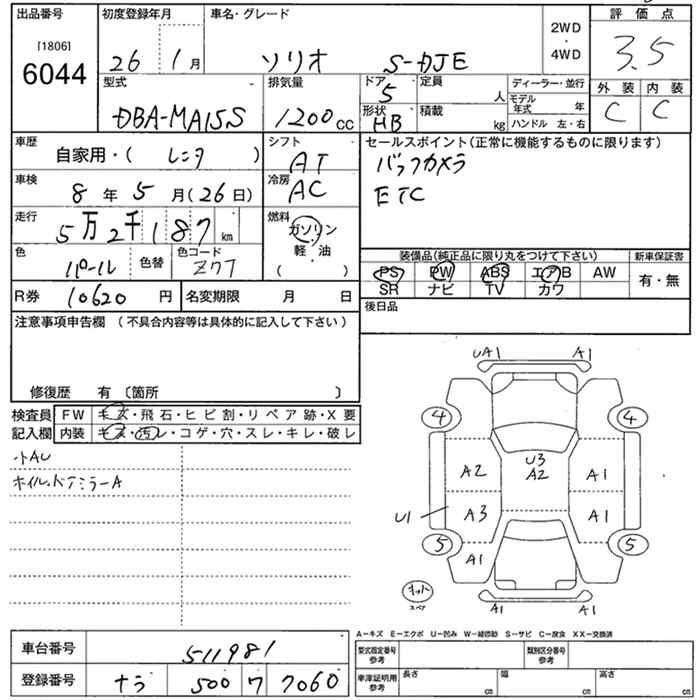 出品番号
[1806]
6044
初度登録年月
26 1月
車名・グレード
ソリオ S-DJE
2WD
・
4WD
評価点
3.5
型式
DBA-MA15S
排気量
1200cc
ドア
5
形状
HB
定員
人
積載
kg
ディーラー・並行
モデル年式 年
ハンドル 左・右
外装 内装
C C
車歴
自家用・( レンタ )
シフト
AT
セールスポイント(正常に機能するものに限ります)
バックカメラ
ETC
車検
8年5月(26日)
冷房
AC
走行
5万2千187km
燃料
ガソリン
軽・油
( )
色
パール
色替
色コード
Z7T
装備品(純正品に限り丸をつけて下さい)
新車保証書
PS PW ABS エアB AW
SR ナビ TV カワ
有・無
R券 10620円
名変期限 月 日
後日品
注意事項申告欄(不具合内容等は具体的に記入して下さい)
修復歴 有〔箇所 〕
検査員記入欄
FW キズ・飛石・ヒビ割・リペア跡・X要
内装 キズ・汚レ・コゲ・穴・スレ・キレ・破レ
小AU
ホイル.ドアミラーA
UA1 A1
4 4
A2 U3 A2 A1
U1 A3 A1
5 5
A1
キット
スペア
A1 A1
A−キズ E−エクボ U−凹み W−補修跡 S−サビ C−腐食 XX−交換済
車台番号 511981
登録番号 ナラ 500 ワ 7060
型式指定番号 参考
類別区分番号 参考
車庫証明用 参考
長さ cm 幅 cm 高さ cm